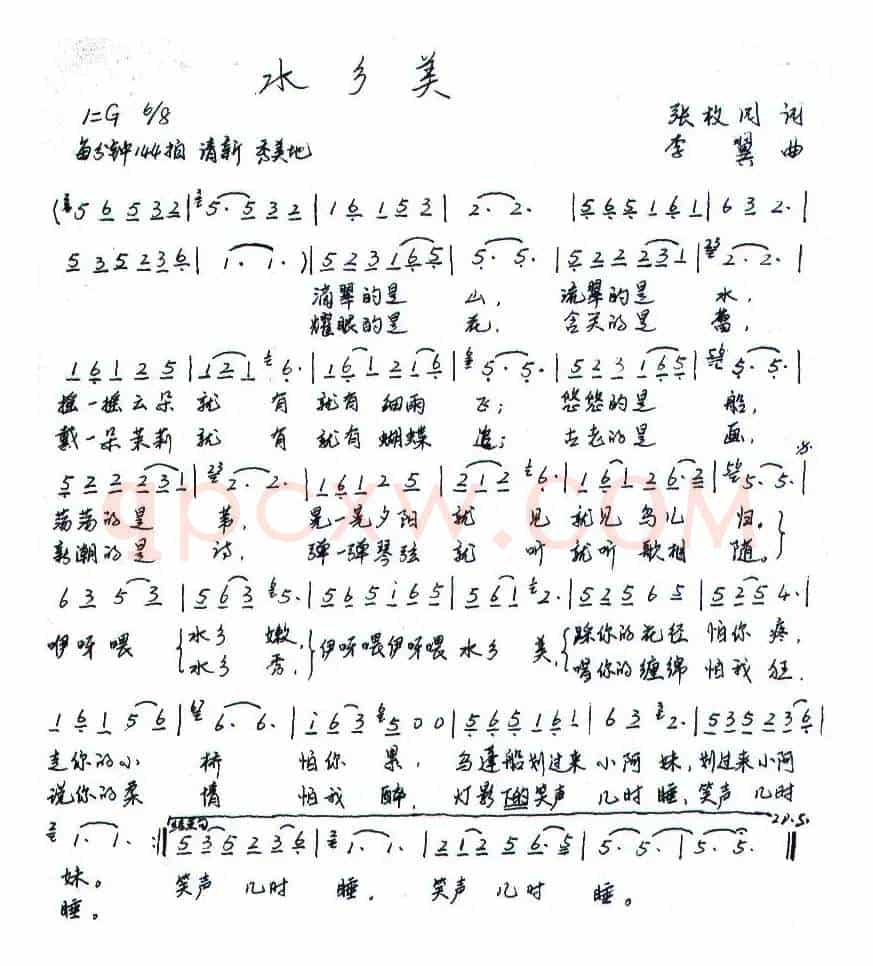 水乡美
1=G 6/8
张枚同 词
每分钟144拍 清新 秀美地
李 翼 曲
(5 6 5 3 2 | 5. 5 3 2 | 1 6 1 5 3 | 2. 2. | 5 6 5 1 6 1 | 6 3 2. |
5 3 5 2 3 6 | 1. 1. ) | 5 2 3 1 6 5 | 5. 5. | 5 2 2 2 3 1 | 2. 2. |
滴翠的是 山, 流翠的是 水,
耀眼的是 花, 含笑的是 蕾,
1 6 1 2 5 | 1 2 1 6. | 1 6 1 2 1 6 | 5. 5. | 5 2 3 1 6 5 | 5. 5. |
摇一摇云朵 就 有 就有 细雨 飞; 悠悠的是 船,
戴一朵茉莉 就 有 就有 蝴蝶 追; 古老的是 画,
5 2 2 2 3 1 | 2. 2. | 1 6 1 2 5 | 2 1 2 6. | 1 6 1 2 6. 2 | 5. 5. |
荡荡的是 苇, 晃一晃夕阳 就 见 就见 鸟儿 归。
新潮的是 诗, 弹一弹琴弦 就 听 就听 歌相 随。
6 3 5 3 | 5 6 3 5. | 5 6 5 i 6 5 | 5 6 1 2. | 5 2 5 6 5 | 5 2 5 4. |
咿呀 喂 水乡 嫩, 咿呀喂咿呀喂 水乡 美, 踩你的花径 怕你 疼,
水乡 秀, 喝你的缠绵 怕我 狂.
1 6 1 5 6 | 6. 6. | i 6 3 5 0 0 | 5 6 5 1 6 1 | 6 3 2. | 5 3 5 2 3 6 |
走你的小 桥 怕你 累, 乌篷船划过来 小阿 妹, 划过来小阿
说你的柔 情 怕我 醉, 灯影下的笑声 几时 睡, 笑声 几时
1. 1. :‖ 5 3 5 2 3 6 | 1. 1. | 2 1 2 5 6. 5 | 5. 5. | 5. 5. ‖
妹。 笑声 几时 睡, 笑声 几时 睡。
睡。
qpcxw.com